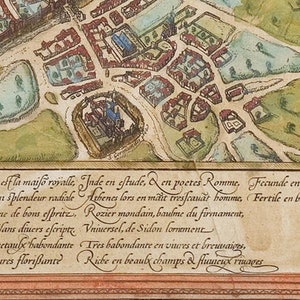 est la maisō royalle, Inde en estude, & en poetes Romme, Fecunde en
n splendeur radiale Athenes lors en maīt tressçauāt homme, Fertile en b
ne de bons espritz. Rozier mondain, baulme du firmament,
dans divers escriptz Vniuersel, de Sidon lornement,
metaulx habondante Tres habondante en viures et breuuaiges,
ures florissante Riche en beaulx champs & fluuieux riuages